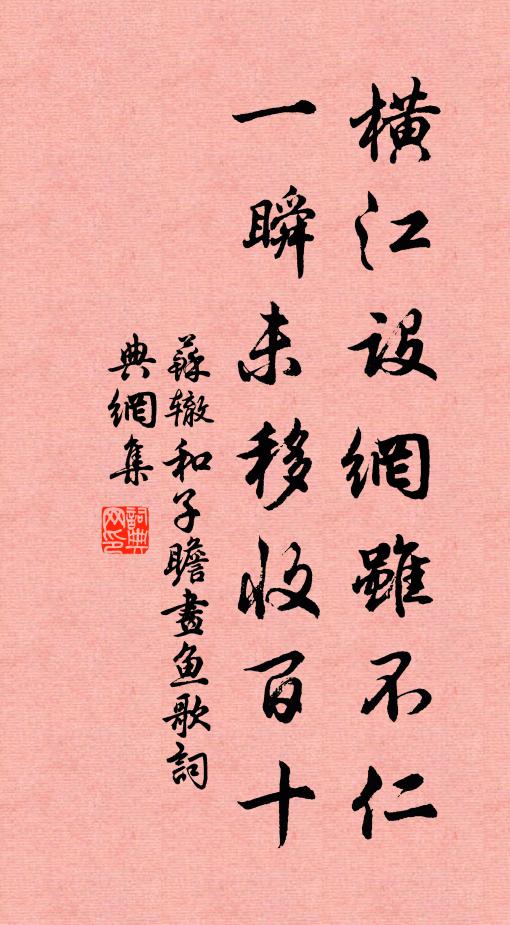 橫江設網雖不仁
一瞬未移收百十
蘇轍和子瞻畫魚歌詞
典網集
詞典
网印